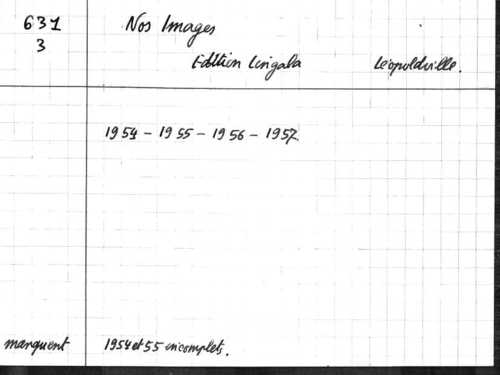 631
3
Nos Images
Edition Lingala Léopoldville.
1954 - 1955 - 1956 - 1957
manquent 1954 et 55 incomplets.